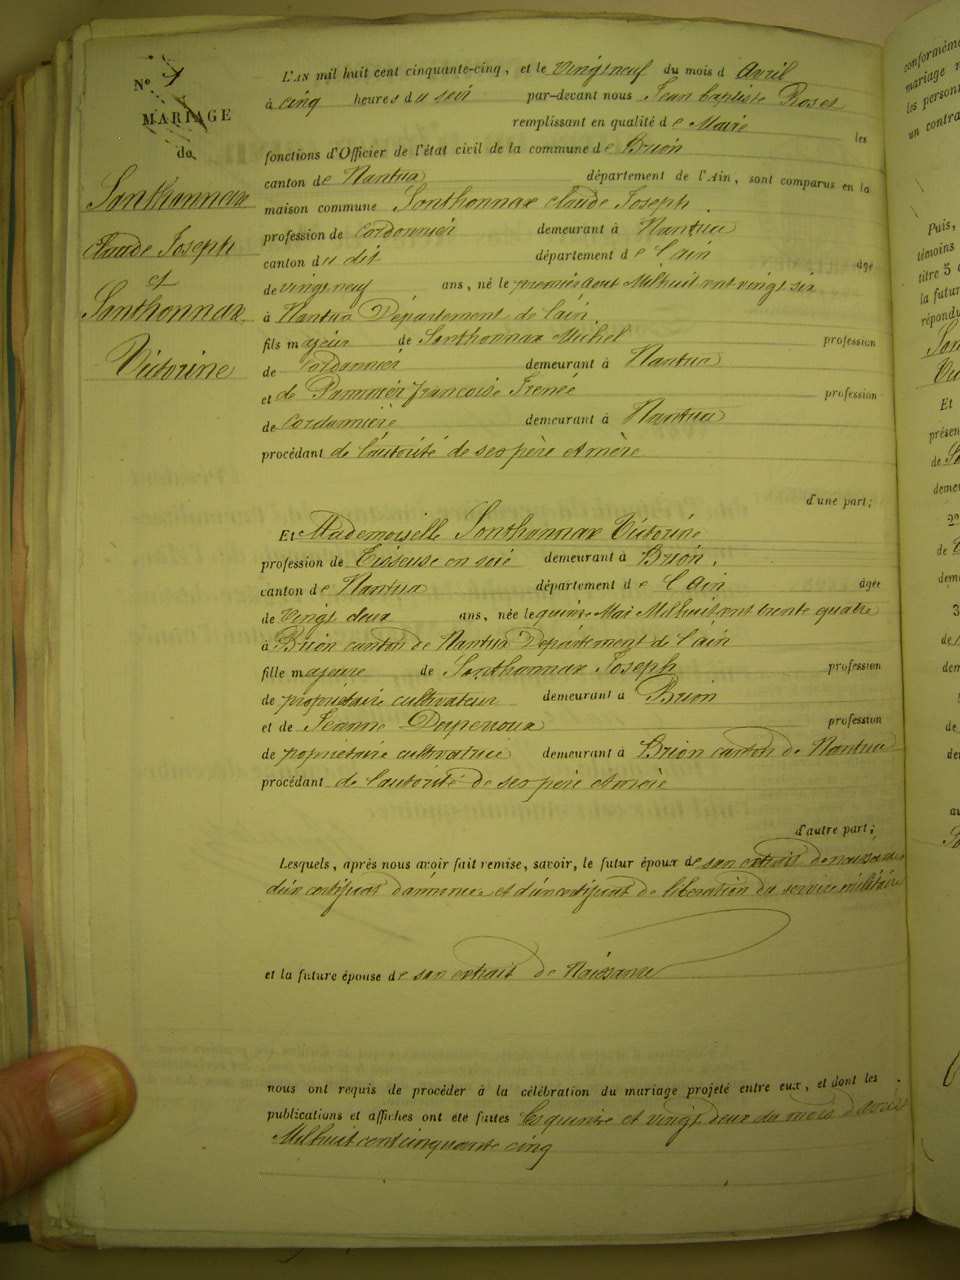 N° 4
MARIAGE
du
Santhannax
Claude Joseph
et
Santhonnax
Victorine
L'AN mil huit cent cinquante-cinq, et le vingt neuf du mois d avril
à cinq heures du soir par-devant nous Jean baptiste Roset
remplissant en qualité de Maire les
fonctions d'Officier de l'état civil de la commune de Brion
canton de Nantua département de l'Ain, sont comparus en la
maison commune Sonthonnax Claude Joseph.
profession de cordonnier demeurant à Nantua
canton du dit département de l'ain âgé
de vingt neuf ans, né le premier aout Mil huit cent vingt six
à Nantua Département de l'ain.
fils majeur de Sonthonnax Michel profession
de cordonnier demeurant à Nantua
et de françoise Irenee profession
de cordonnière demeurant à Nantua
procédant de l'autorité de ses père et mère
d'une part;
Et Mademoiselle Sonthonnax Victorine
profession de Tisseuse en soie demeurant à Brion,
canton de Nantua département de l'ain âgée
de vingt deux ans, née le quinze Mai Mil huit cent trente quatre
à Brion canton de Nantua Département de l'ain
fille majeure de Sonthonnax Joseph profession
de propriétaire cultivateur demeurant à Brion
et de Jeanne profession
de propriétaire cultivatrice demeurant à Brion canton de Nantua
procédant de l'autorité de ses père et mère
d'autre part;
Lesquels, après nous avoir fait remise, savoir, le futur époux de son extrait de naissance
d'un certificat d'annonce et d'un certificat de libération du service militaire
et la future épouse de son extrait de Naissance
nous ont requis de procéder à la célébration du mariage projeté entre eux, et dont les
publications et affiches ont été faites les quinze et vingt deux du mois d'avril
Mil huit cent cinquante cinq
conformém
mariage
les personn
un contra
Puis,
témoins
titre 5
la futur
répondu
Et
présen
de
deme
22
de
deme
3
de
dem
de
der
au